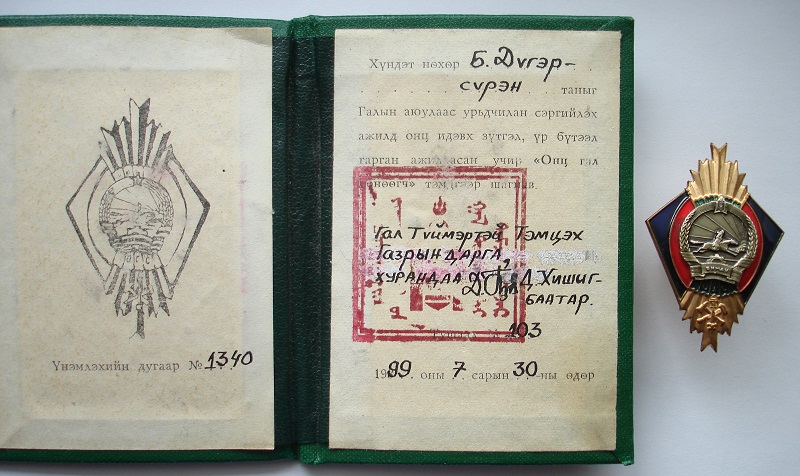 Үнэмлэхийн дугаар № 1340
Хүндэт нөхөр Б. Дүгэр-
сүрэн таныг
Галын аюулаас урьдчилан сэргийлэх
ажилд онц идэвх зүтгэл, үр бүтээл
гарган ажилласан учир «Онц гал
сөнөөгч» тэмдгээр шагнав.
Гал Түймэртэй Тэмцэх
Газрын дарга,
хурандаа Д. Хишиг-
баатар.
103
1999 оны 7 сарын 30-ны өдөр